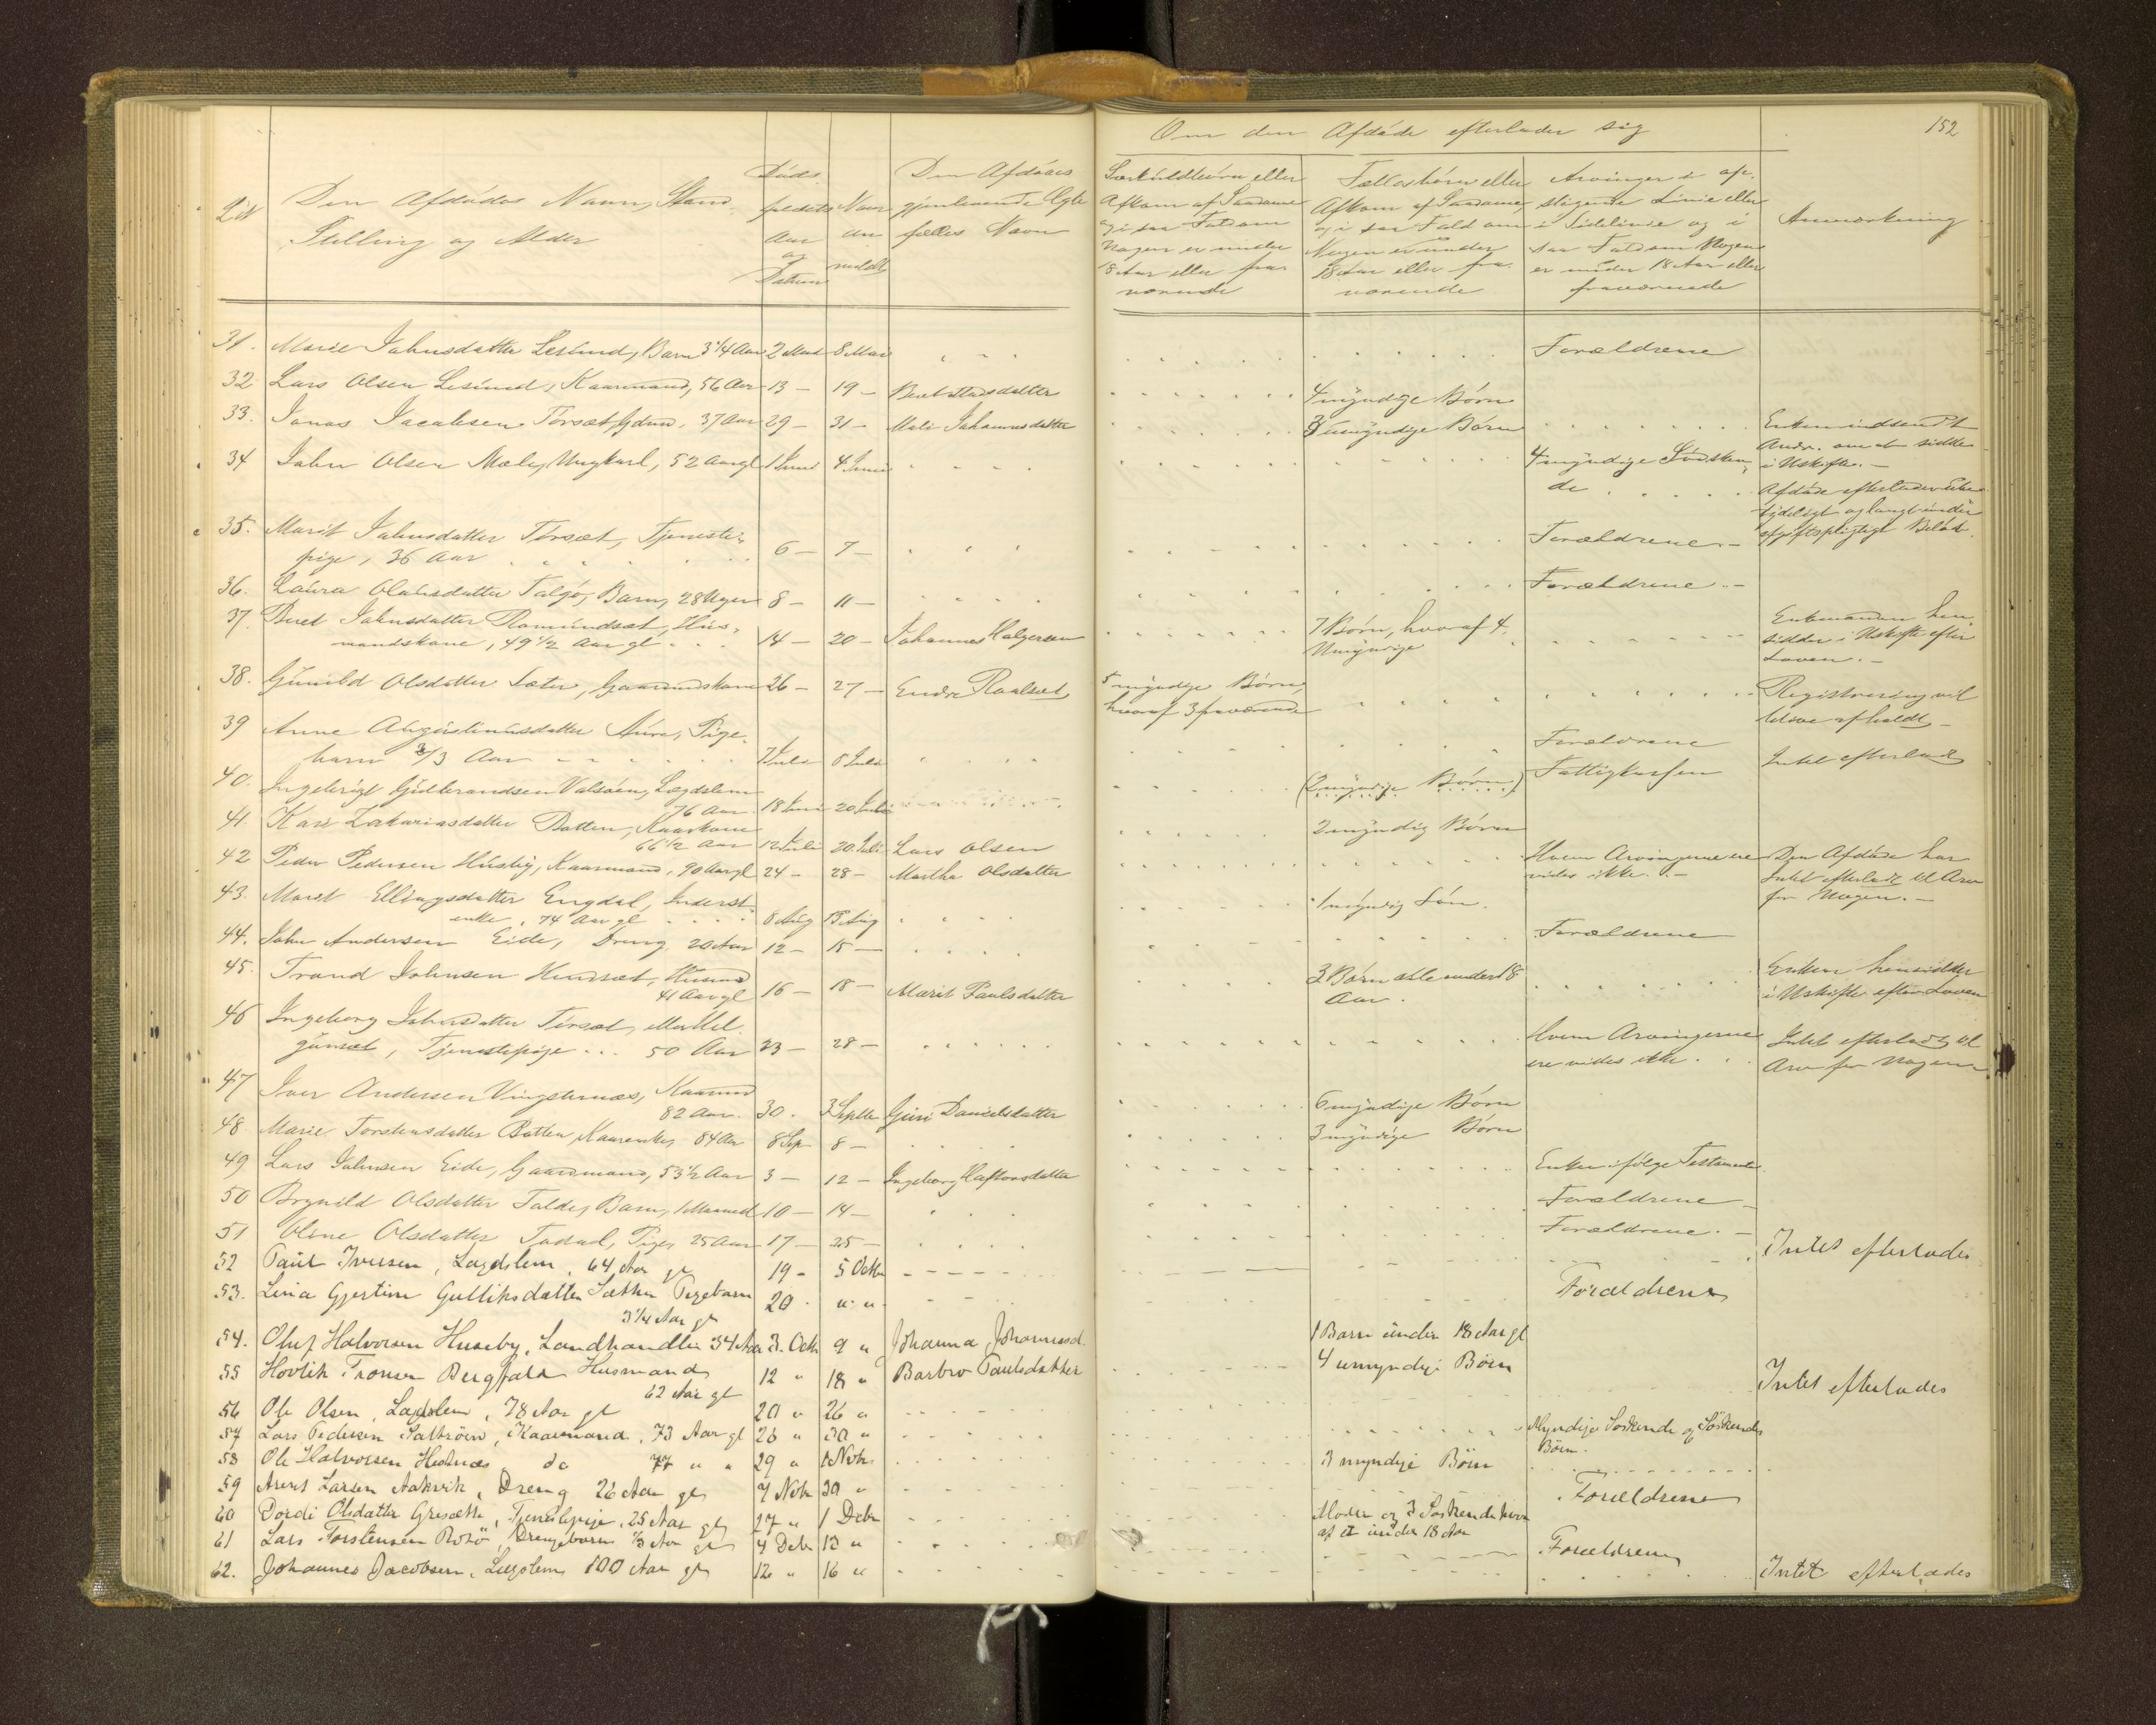 Om den Afdöde efterlader sig
152
Lit
Den Afdödes Navn, Stand,
Stilling og Alder
Döds-
faldets
Aar
og
Datum
Naar
an
meldt
Den Afdödes
gjenlevende Ægte
fælles Navn
Særkuldbörn eller
Afkom af Saadanne
og i saa Fald om
Nogen er under
18 Aar eller fra-
værende
Fællesbörn eller
Afkom af Saadanne,
og i saa Fald om
Nogen er under
18 Aar eller fra-
værende
Arvinger i op-
stigende Linie eller
i Sidelinie og i
saa Fald om Nogen
er under 18 Aar eller
fraværende
Anmærkning
31. Marie Johnsdatter Lesund, Barn 3 1/4 Aar 2 Mai 8 Mai Forældrene
32 Lars Olsen Lesund, Kaarmand, 56 Aar 13 - 19 - 4 myndige Börn
33. Jonas Jacobsen Torsæt, Gdmd, 37 Aar 29 - 31 - Mali Johannesdatter 3 umyndige Börn Enken indsendt
Andr. om at sidde
i Uskifte. -
34 John Olsen Mæle, Ungkarl, 52 Aar gl 1 Juni 4 Juni 4 myndige Södsken-
de Afdöde efterlader
og langt under
afgiftspligtigt Belöb.
35. Marit Johnsdatter Torsæt, Tjeneste-
pige, 36 Aar 6 - 7 - Forældrene -
36. Laura Olausdatter Talgö, Barn, 28 Uger 8 - 11 - Forældrene -
37. Beret Johnsdatter Romundsæt, Hus-
mandskone, 49 1/2 Aar gl 14 - 20 - Johannes Halgersen 7 Börn, hvoraf 4
Umyndige Enkemanden hen
sidder i Uskifte efter
Loven. -
38. Gunild Olsdatter Sæter, Gaardmdskone 26 - 27 - Endre Roalsæt 5 myndige Börn,
hvoraf 3 fraværende Registrering vil
blive afholdt -
39 Anne Augustinusdatter Aure, Pige-
barn 2/3 Aar 7 Juli 8 Juli Forældrene
40. Ingebrigt Gudbrandsen Valsöen, Lægdslem
76 Aar 18 Juni 20 Juli (2 myndige Börn) Fattigkassen Intet efterladt
41. Kari Zakariasdatter Botten, Kaarkone
66 1/2 Aar 12 Juli 20 Juli Lars Olsen 2 myndig Börn
42 Peder Pedersen Husby, Kaarmand, 90 Aar gl 24 - 28 - Martha Olsdatter Hvem Arvingerne ere
vides ikke. - Den Afdöde har
Intet efterladt til Arv
for Nogen. -
43. Marit Ellingsdatter Engdal, Inderst-
enke, 74 Aar gl 8 Aug 15 Aug 1 myndig Sön.
44. John Andersen Eide, Dreng 20 Aar 12 - 15 - Forældrene
45. Trond Johnsen Hendset, Husmd
41 Aar gl 16 - 18 - Marit Paulsdatter 3 Börn alle under 18
Aar. Enken hensidder
i Uskifte efter Loven
46 Ingeborg Johnsdatter Torsæt, eller Mel-
gunset, Tjenestepige 50 Aar 23 - 28 - Hvem Arvingerne
ere vides ikke. Intet efterladt til
Arv for Nogen
47 Iver Andersen Vingsternæs, Kaarmd
82 Aar. 30. 3 Septbr Guri Danielsdatter 6 myndige Börn
48 Marie Torstensdatter Botten, Kaarenke, 84 Aar 8 Sep 8 - 3 myndige Börn
49 Lars Johnsen Eide, Gaardmand, 53 1/2 Aar 3 - 12 - Ingeborg Haftorsdatter Enken ifölge Testamente
50 Brynild Olsdatter Talde, Barn, 1 Maaned 10 - 14 - Forældrene -
51 Oline Olsdatter Todal, Pige, 25 Aar 17 - 25 - Forældrene. -
52 Paul Iversen, Lægdslem, 64 Aar gl 19 - 5 Octbr Intet efterlades
53. Lina Gjertine Gulliksdatter Sæther Pigebarn
3 1/4 Aar gl 20 " " Forældrene
54. Oluf Halvorsen Huseby, Landhandler 34 Aar 3. Octb 9 " Johanna Johannesd. 1 Barn under 18 Aar gl
55 Hovlik Tronsen Bergfald Husmand
62 Aar gl 12 " 18 " Barbro Paulsdatter 4 umyndige Börn Intet efterlades
56 Ole Olsen, Lægdslem, 78 Aar gl 20 " 26 "
57 Lars Pedersen Saltröen, Kaarmand, 73 Aar gl 26 " 30 " Myndige Söskende og Söskendes
Börn.
58 Ole Halvorsen Holmnæs do 77 " " 29 " 1 Novb. 3 myndige Börn
59 Arent Larsen Aakvik, Dreng 26 Aar gl 7 Novb 30 " Forældrene
60 Dordi Olsdatter Gresæth, Tjenestepige, 25 Aar gl 27 " 1 Debr Moder og 3 Söskende hvor-
af et under 18 Aar
61 Lars Torstensen Rotö, Drengebarn 1/3 Aar gl 4 Debr 13 " Forældrene
62. Johannes Jacobsen, Lægslem, 100 Aar gl 12 " 16 " Intet efterlades